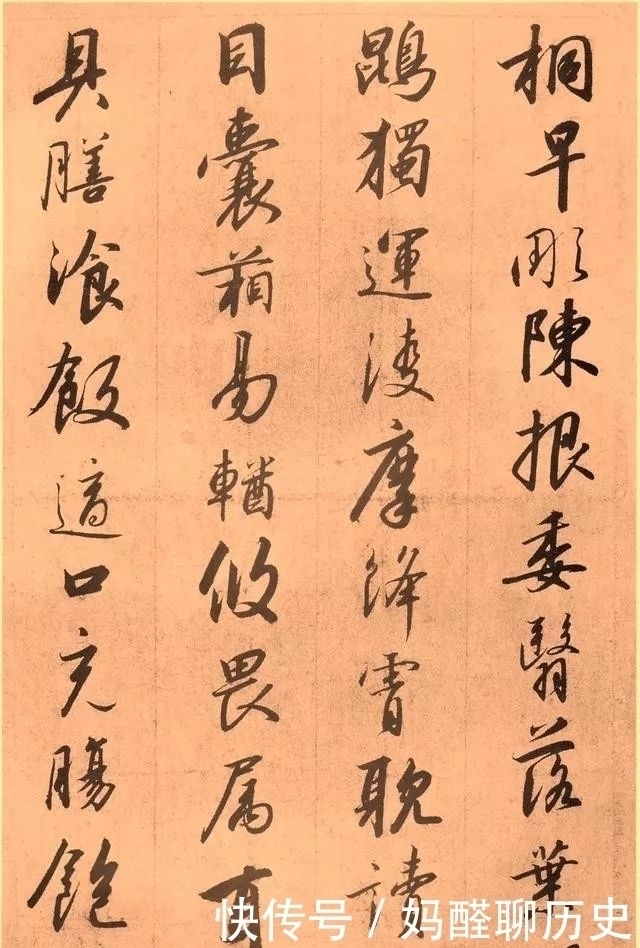 桐早彫陳根委翳落葉
鵾獨運淩摩絳霄耽讀
目囊葙易輶攸畏属
具膳湌飯適口充腸飽
快传号 / 妈醛聊历史